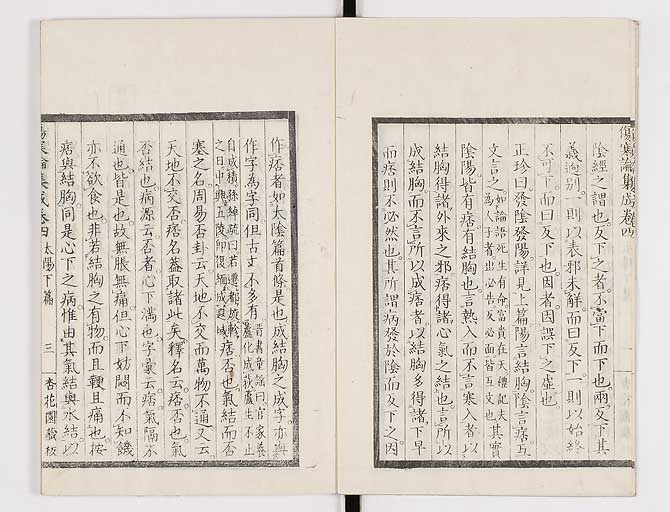 傷寒論集成卷四
陰經之謂也反下之者不當下而下也兩反下其
義逈別一則以表邪未解而曰反下一則以始終
不可下而曰反下也因者因誤下之虛也
正珍曰發陰發陽詳見上篇陽言結胸陰言痞互
文言之如論語死生有命富貴在天禮記夫
為人子者出必告反必面皆互文也其實
陰陽皆有痞有結胸也言熱入而不言寒入者以
結胸得諸外來之邪痞得諸心氣之結也言所以
成結胸而不言所以成痞者以結胸多得諸下早
而痞則不必然也其所謂病發於陰而反下之因
作痞者如太陰篇首條是也成結胸之成字亦與
作字為字同但古文不多有晉書童謠曰官家養
蘆化成荻蘆生不止
自成積孫綽疏曰若遷都旋軫
之日中興五陵即復緬成遐域
痞否也氣結而否
塞之名周易否卦云天地不交而萬物不通又云
天地不交否痞名蓋取諸此矣釋名云痞否也氣
否結也病源云否者心下滿也字彙云痞氣隔不
通也皆是也故無脹無痛但心下妨悶而不知饑
亦不欲食也非若結胸之有物而且鞕且痛也按
痞與結胸同是心下之病惟由其氣結與水結以
傷寒論集成卷四 太陽下篇 三 杏花園藏板